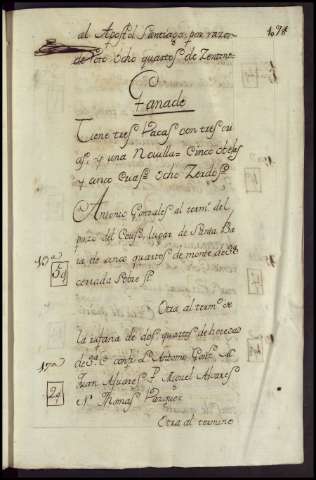 al Apostol Santiago por razon
de Soto Ocho quartos de Zenteno
Ganado
Tiene tres Vacas con tres cu
as y una Novilla = Cinco obejas
y cinco cuas Ocho Zerdos
Antonio Gonzales al term.º del
pozo del lugar de Santa Ba
ia de cinco quartos de monte de 3ª
cerrada Sobre si
Otra al termº de
la de dos quartos de
de 3ª C conf. Antonio Gonz. M
Juan Alvares P. Miguel Alvares
N Thomas Vazquez
Otra al termino